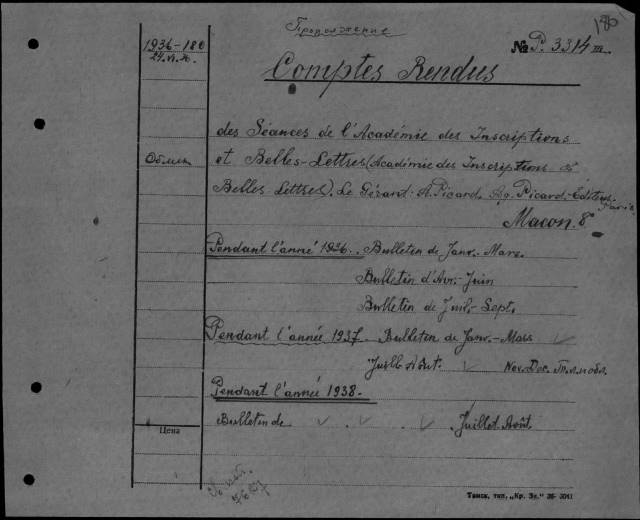 Продолжение
180
1936-180
24.VI.36.
№ P. 3314 III
Comptes Rendus
des Séances de l'Académie des Inscriptions
Обмен
et Belles-Lettres (Académie des Inscriptions &
Belles-Lettres). Le Gérant: A. Picard. Ag. Picard.-Editeur. Paris
Macon. 8°
Pendant l'anné 1936. Bulletin de Janv.-Mars.
Bulletin d'Avr.-Juin
Bulletin de Juil.-Sept.
Pendant l'année 1937. Bulleten de Janv.-Mars
Juill. Aôut. Nov. Dec. Т.л. и обл.
Pendant l'année 1938.-
Bulleten de Juillet Août.
Цена
Томск, тип. „Кр. Зн." 36- 3041